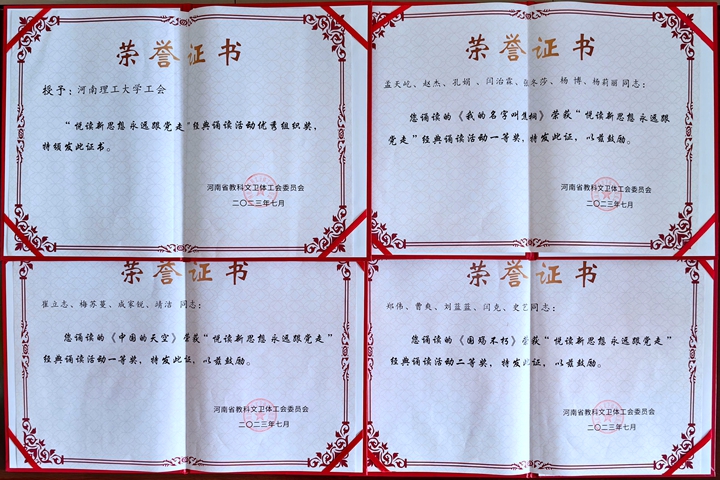 荣誉证书
授予：河南理工大学工会
“悦读新思想永远跟党走”经典诵读活动优秀组织奖，
特颁发此证书。
河南省教科文卫体工会委员会
二〇二三年七月
荣誉证书
孟天屹、赵杰、孔娟、闫治霖、冬莎、杨博、杨莉丽同志：
您诵读的《我的名字叫焦桐》荣获“悦读新思想永远跟
党走”经典诵读活动一等奖，特发此证，以兹鼓励。
河南省教科文卫体工会委员会
二〇二三年七月
荣誉证书
崔立志、梅苏蔓、成家锐、靖洁 同志：
您诵读的《中国的天空》荣获“悦读新思想永远跟党走”
经典诵读活动一等奖，特发此证，以兹鼓励。
河南省教科文卫体工会委员会
二〇二三年七月
荣誉证书
郑伟、曹爽、刘蓝蓝、闫克、史艺同志：
您诵读的《国殇不朽》荣获“悦读新思想永远跟党走”
经典诵读活动二等奖，特发此证，以兹鼓励。
河南省教科文卫体工会委员会
二〇二三年七月